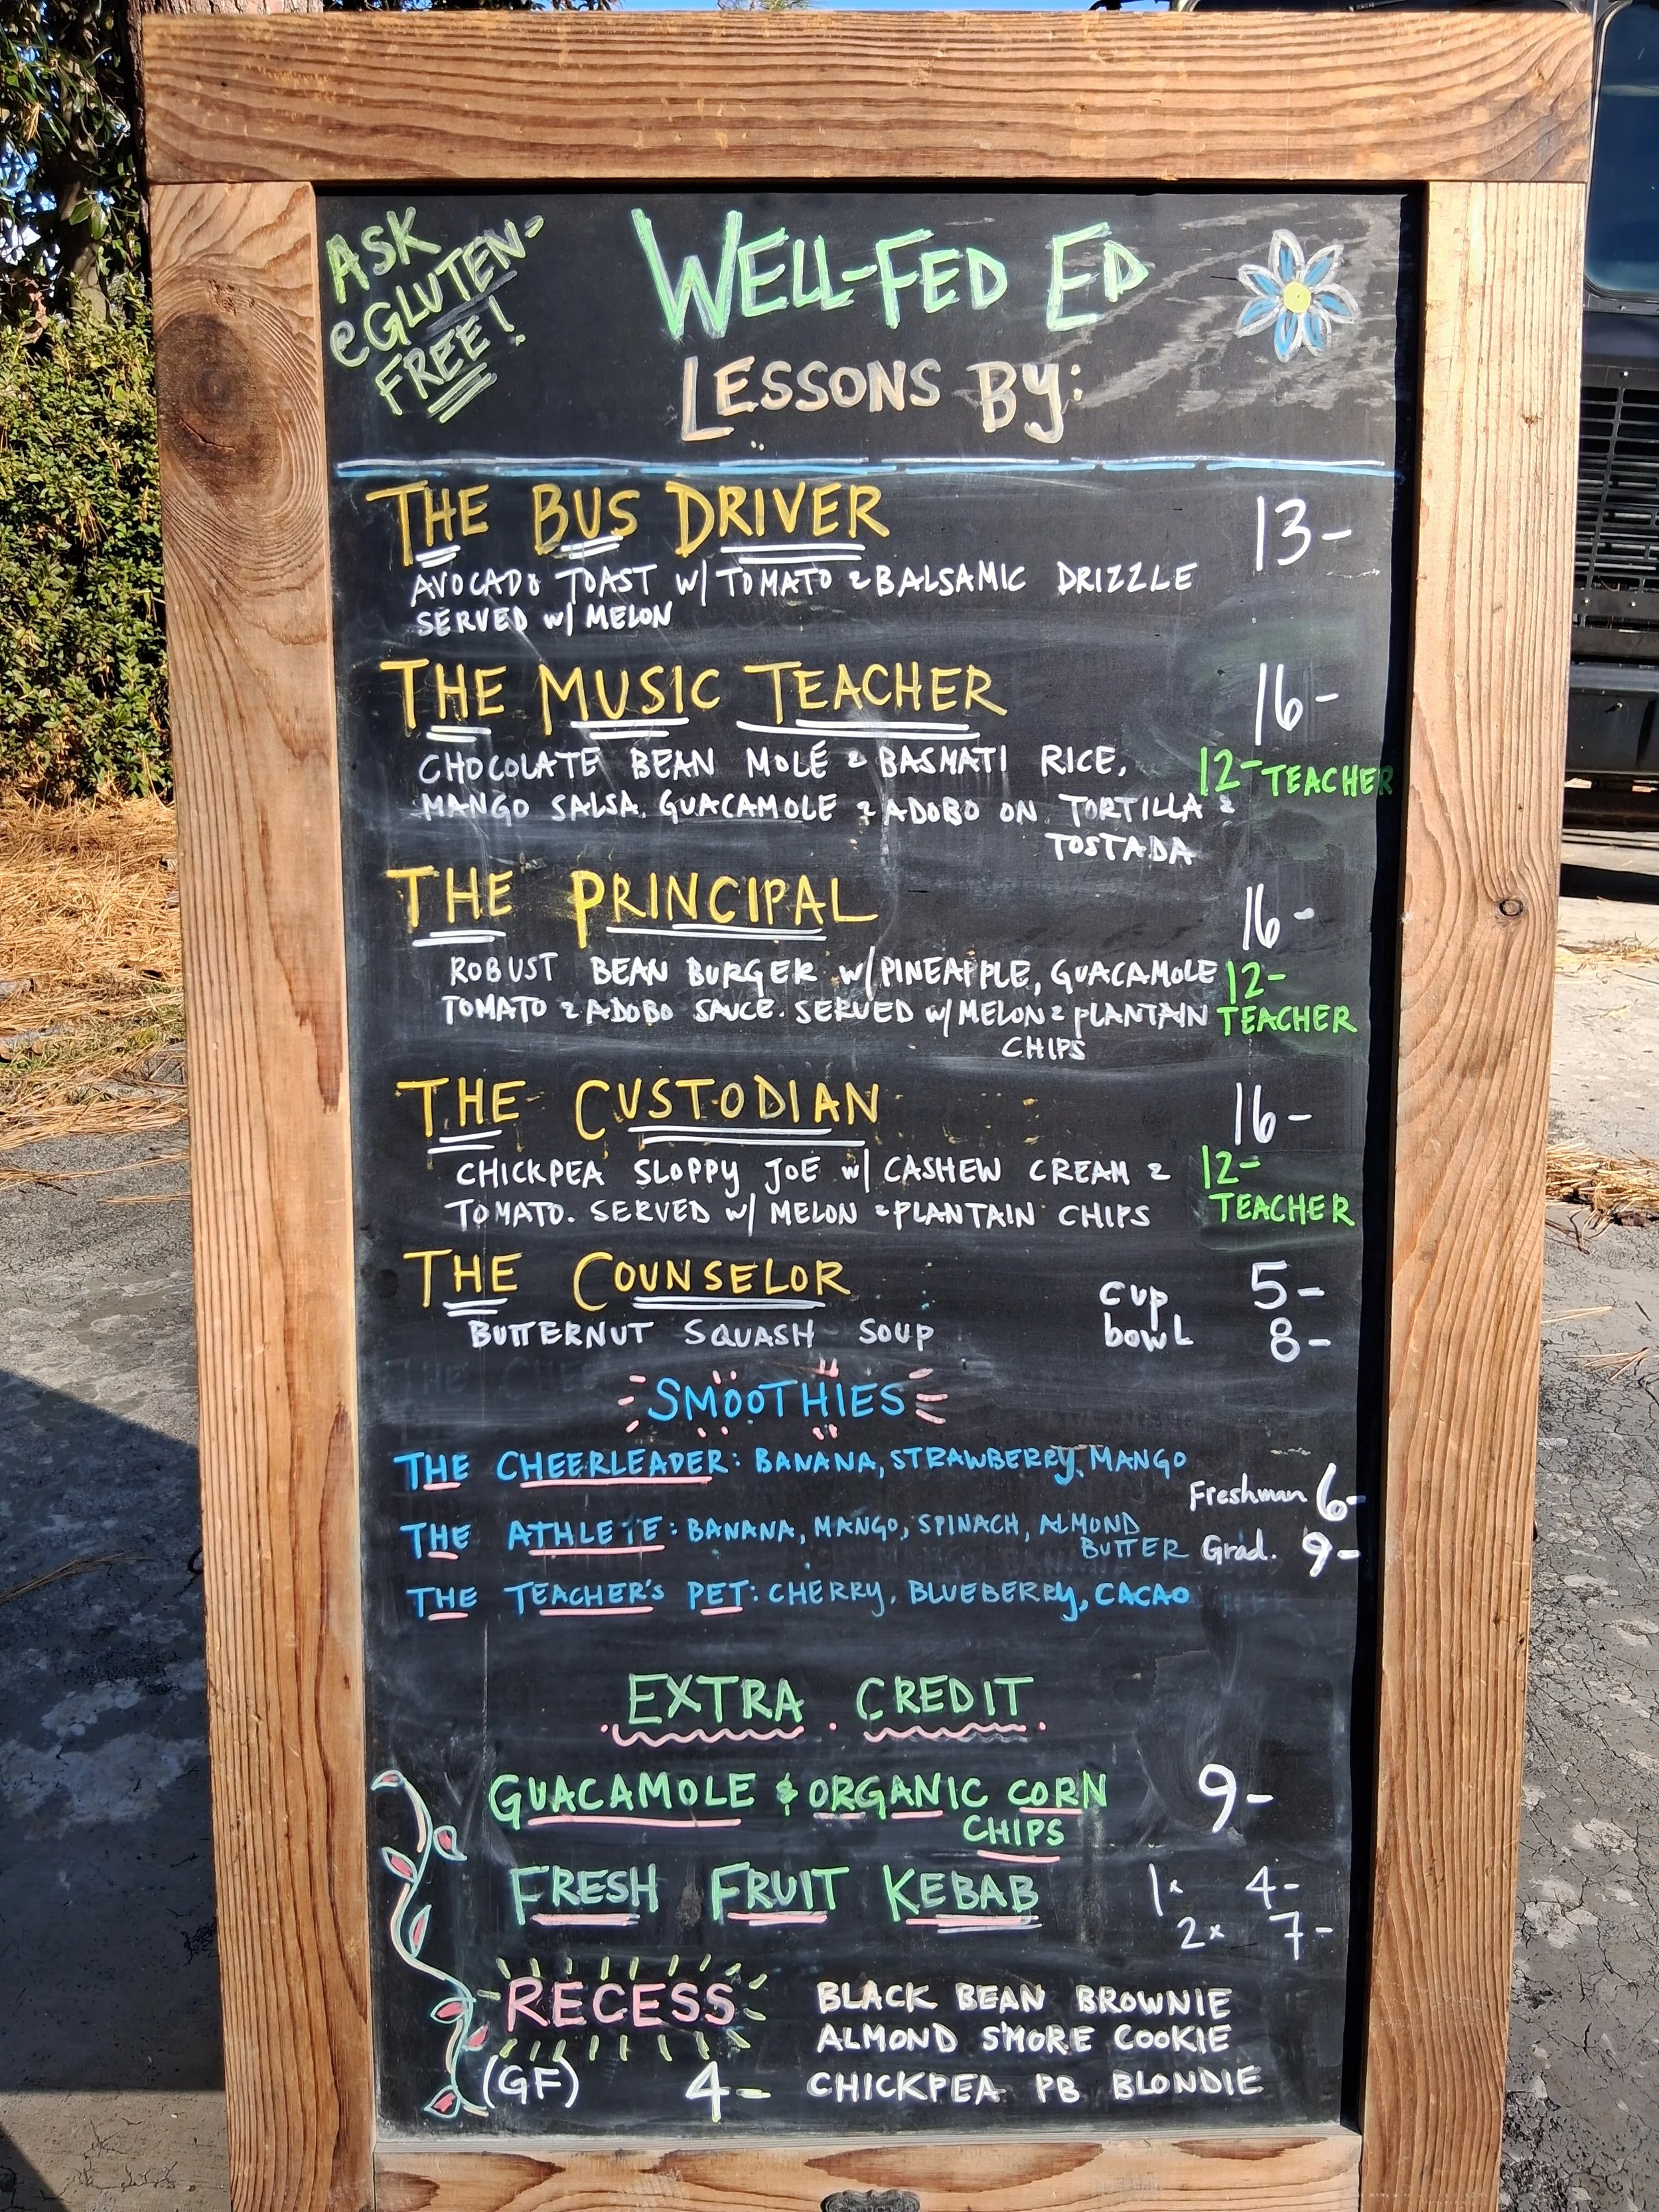 ASK
@GLUTEN-
FREE!
WELL-FED ED
LESSONS BY:
THE BUS DRIVER 13-
AVOCADO TOAST W/ TOMATO & BALSAMIC DRIZZLE
SERVED W/ MELON
THE MUSIC TEACHER 16-
CHOCOLATE BEAN MOLÉ & BASMATI RICE, 12- TEACHER
MANGO SALSA, GUACAMOLE & ADOBO ON TORTILLA &
TOSTADA
THE PRINCIPAL 16-
ROBUST BEAN BURGER W/ PINEAPPLE, GUACAMOLE 12-
TOMATO & ADOBO SAUCE. SERVED W/ MELON & PLANTAIN TEACHER
CHIPS
THE CUSTODIAN 16-
CHICKPEA SLOPPY JOE W/ CASHEW CREAM & 12-
TOMATO. SERVED W/ MELON & PLANTAIN CHIPS TEACHER
THE COUNSELOR cup 5-
BUTTERNUT SQUASH SOUP bowl 8-
SMOOTHIES
THE CHEERLEADER: BANANA, STRAWBERRY, MANGO
Freshman 6-
THE ATHLETE: BANANA, MANGO, SPINACH, ALMOND
BUTTER Grad. 9-
THE TEACHER'S PET: CHERRY, BLUEBERRY, CACAO
EXTRA CREDIT
GUACAMOLE & ORGANIC CORN 9-
CHIPS
FRESH FRUIT KEBAB 1x 4-
2x 7-
RECESS BLACK BEAN BROWNIE
ALMOND S'MORE COOKIE
(GF) 4- CHICKPEA PB BLONDIE